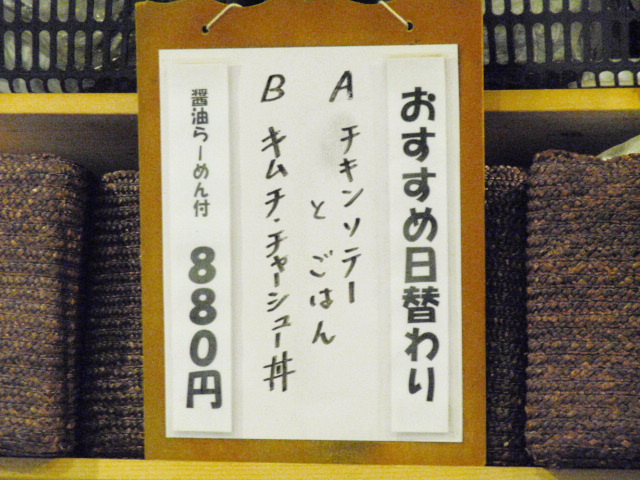 おすすめ日替わり
A チキンソテー
とごはん
B キムチ・チャーシュー丼
醤油らーめん付 880円